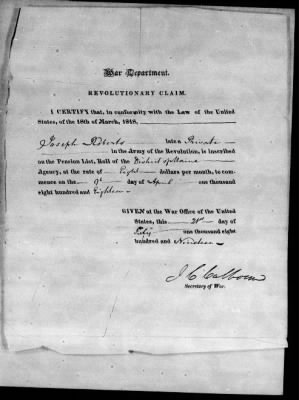 War Department.
REVOLUTIONARY CLAIM.
I CERTIFY that, in conformity with the Law of the United
States, of the 18th of March, 1818,
Joseph Roberts late a Private
in the Army of the Revolution, is inscribed
on the Pension List, Roll of the District of Maine
Agency, at the rate of Eight dollars per month, to com-
mence on the day of April one thousand
eight hundred and Eighteen
GIVEN at the War Office of the United
States, this 21st day of
July one thousand eight
hundred and Nineteen
J. C. Calhoun
Secretary of War.